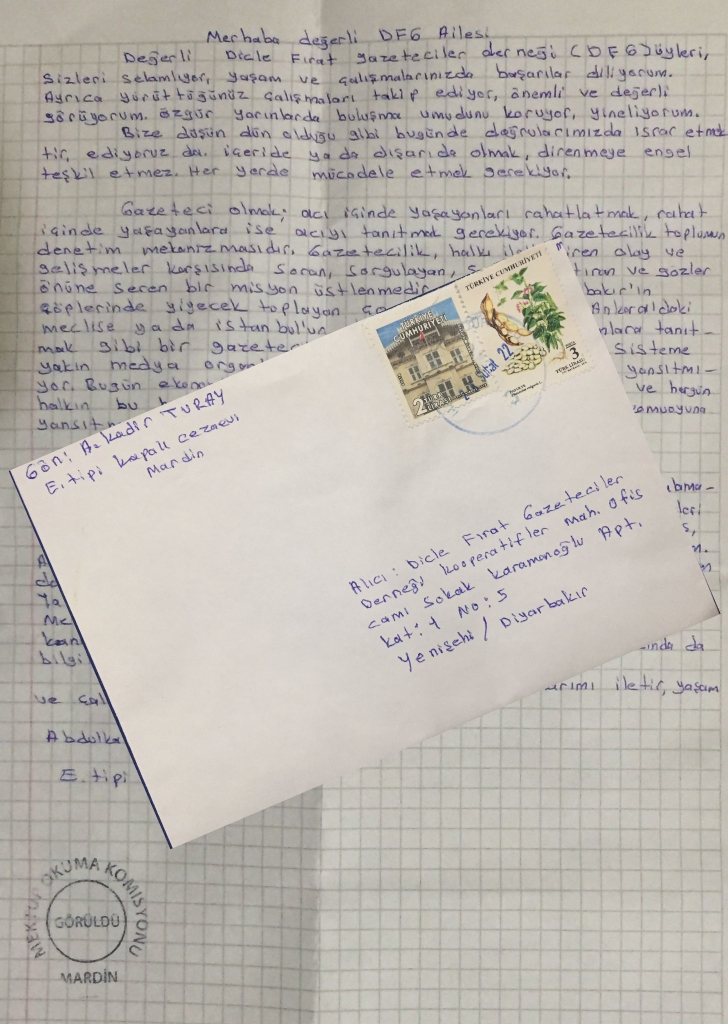 Merhaba değerli DFG Ailesi
Değerli Dicle Fırat gazeteciler derneği (DFG) üyleri,
Sizleri selamlıyor, yaşam ve çalışmalarınızda başarılar diliyorum.
Ayrıca yürüttüğünüz çalışmaları takip ediyor, önemli ve değerli
görüyorum. özgür yarınlarda buluşma umudunu koruyor, yineliyorum.
Bize düşün dün olduğu gibi bugünde doğrularımızda ısrar etmek
tir, ediyoruz da. içeride ya da dışarıda olmak, direnmeye engel
teşkil etmez. Her yerde mücadele etmek gerekiyor.
Gazeteci olmak; acı içinde yaşayanları rahatlatmak, rahat
içinde yaşayanlara ise acıyı tanıtmak gerekiyor. Gazetecilik toplumun
denetim mekanizmasıdır. Gazetecilik, halkı iren olay ve
gelişmeler karşısında soran, sorgulayan, tıran ve gözler
önüne seren bir misyon üstlenmedir bakır'ın
çöplerinde yiyecek toplayan Ankara'daki
meclise ya da istanbul'un nlara tanıt-
mak gibi bir gazete Sisteme
yakın medya orga yansıtmı-
yor. Bugün ekono ve hergün
halkın bu amuoyuna
yansıtm
leri
bilgi ında da
ve çal arımı iletir, yaşam
Abdulka
E. tipi
TÜRKİYE CUMHURİYETİ
2 TÜRK LİRASI
TÜRKİYE CUMHURİYETİ
3
TÜRK LİRASI
Şubat 22
Gön: A.kadir TURAY
E.tipi kapalı cezaevi
Mardin
Alıcı: Dicle Fırat Gazeteciler
Derneği Kooperatifler Mah. Ofis
cami Sokak Karamanoğlu Apt.
kat: 1 No: 5
Yenişehi / Diyarbakır
MEKTUP OKUMA KOMİSYONU
GÖRÜLDÜ
MARDİN